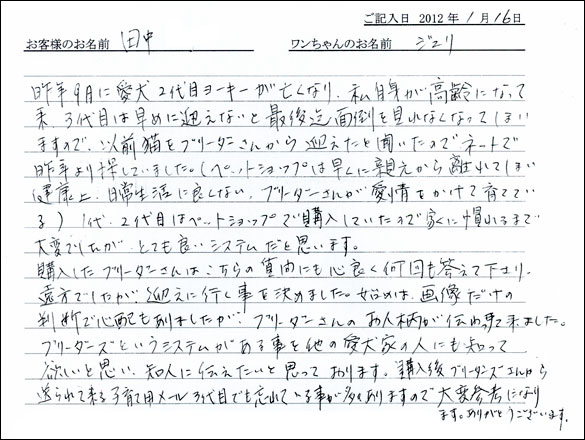 ご記入日 2012 年 1 月 16 日
お客様のお名前 田中 ワンちゃんのお名前 ジュリ
昨年9月に愛犬2代目ヨーキーが亡くなり、私自身が高齢になって
来、3代目は早めに迎えないと最後迄面倒を見れなくなってしまい
ますので、以前猫をブリーダーさんから迎えたと聞いたのでネットで
昨年より探していました。(ペットショップは早くに親元から離れてしまい
健康上、日常生活に良くない、ブリーダーさんが愛情をかけて育ててい
る) 1代、2代目はペットショップで購入していたので家に慣れるまで
大変でしたが、とても良いシステムだと思います。
購入したブリーダーさんはこちらの質問にも心良く何回も答えて下さり、
遠方でしたが、迎えに行く事を決めました。始めは、画像だけの
判断で心配もありましたが、ブリーダーさんのお人柄が伝わって来ました。
ブリーダーズというシステムがある事を他の愛犬家の人にも知って
欲しいと思い、知人に伝えたいと思っております。購入後ブリーダーズさんから
送られて来る子育て用メール3代目でも忘れている事が多くありますので大変参考になり
ます。ありがとうございます。